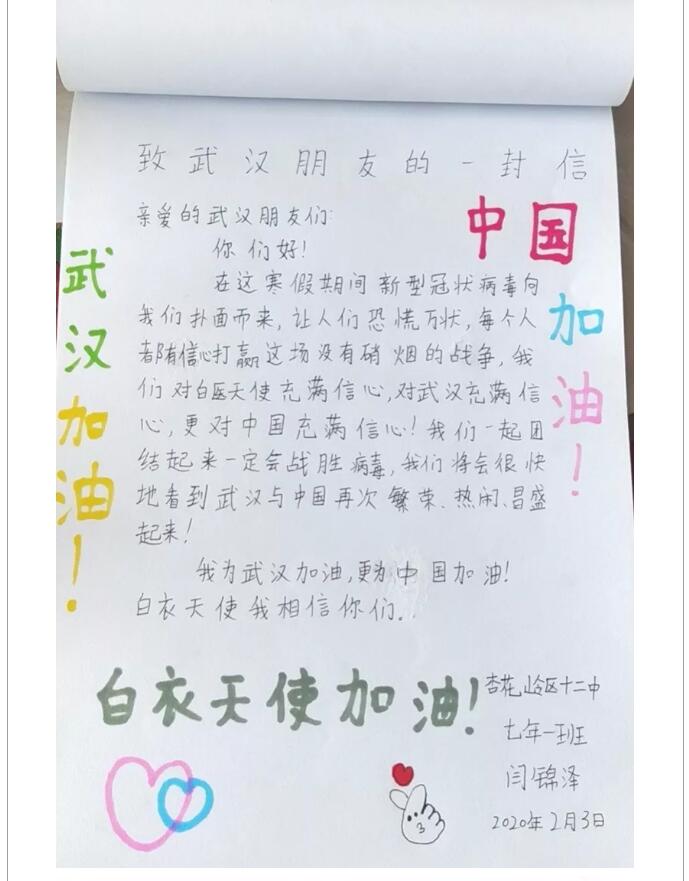 致武汉朋友的一封信
亲爱的武汉朋友们:
你们好!
在这寒假期间新型冠状病毒向
我们扑面而来,让人们恐慌万状,每个人
都有信心打赢这场没有硝烟的战争,我
们对白医天使充满信心,对武汉充满信
心,更对中国充满信心!我们一起团
结起来一定会战胜病毒,我们将会很快
地看到武汉与中国再次繁荣、热闹、昌盛
起来!
我为武汉加油,更为中国加油!
白衣天使我相信你们..
武汉加油!
中国
加油!
白衣天使加油!
杏花岭区十二中
七年一班
闫锦泽
2020年2月3日